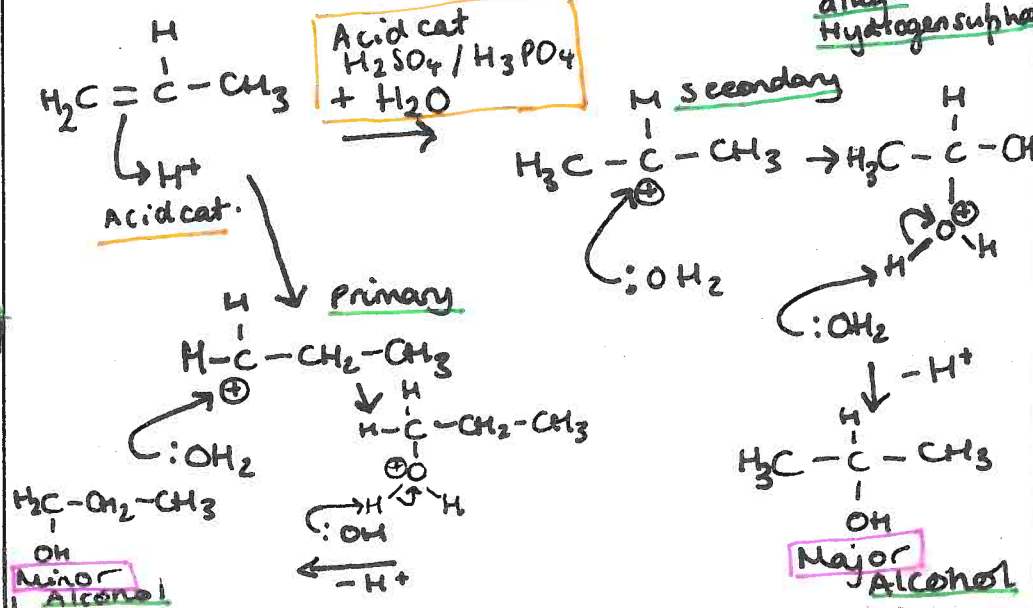 alkyl
Hydrogensulpha
Acid cat
H₂SO₄ / H₃PO₄
+ H₂O
H
H₂C = C – CH₃
H⁺
Acid cat.
secondary
H
H₃C – C – CH₃
⊕
:OH₂
H
H₃C – C – CH
O ⊕
H H
:OH₂
– H⁺
H
H₃C – C – CH₃
OH
Major
Alcohol
primary
H
H – C – CH₂ – CH₃
⊕
:OH₂
H
H – C – CH₂ – CH₃
⊕ O
H H
:OH
– H⁺
H₂C – CH₂ – CH₃
OH
Minor
Alcohol